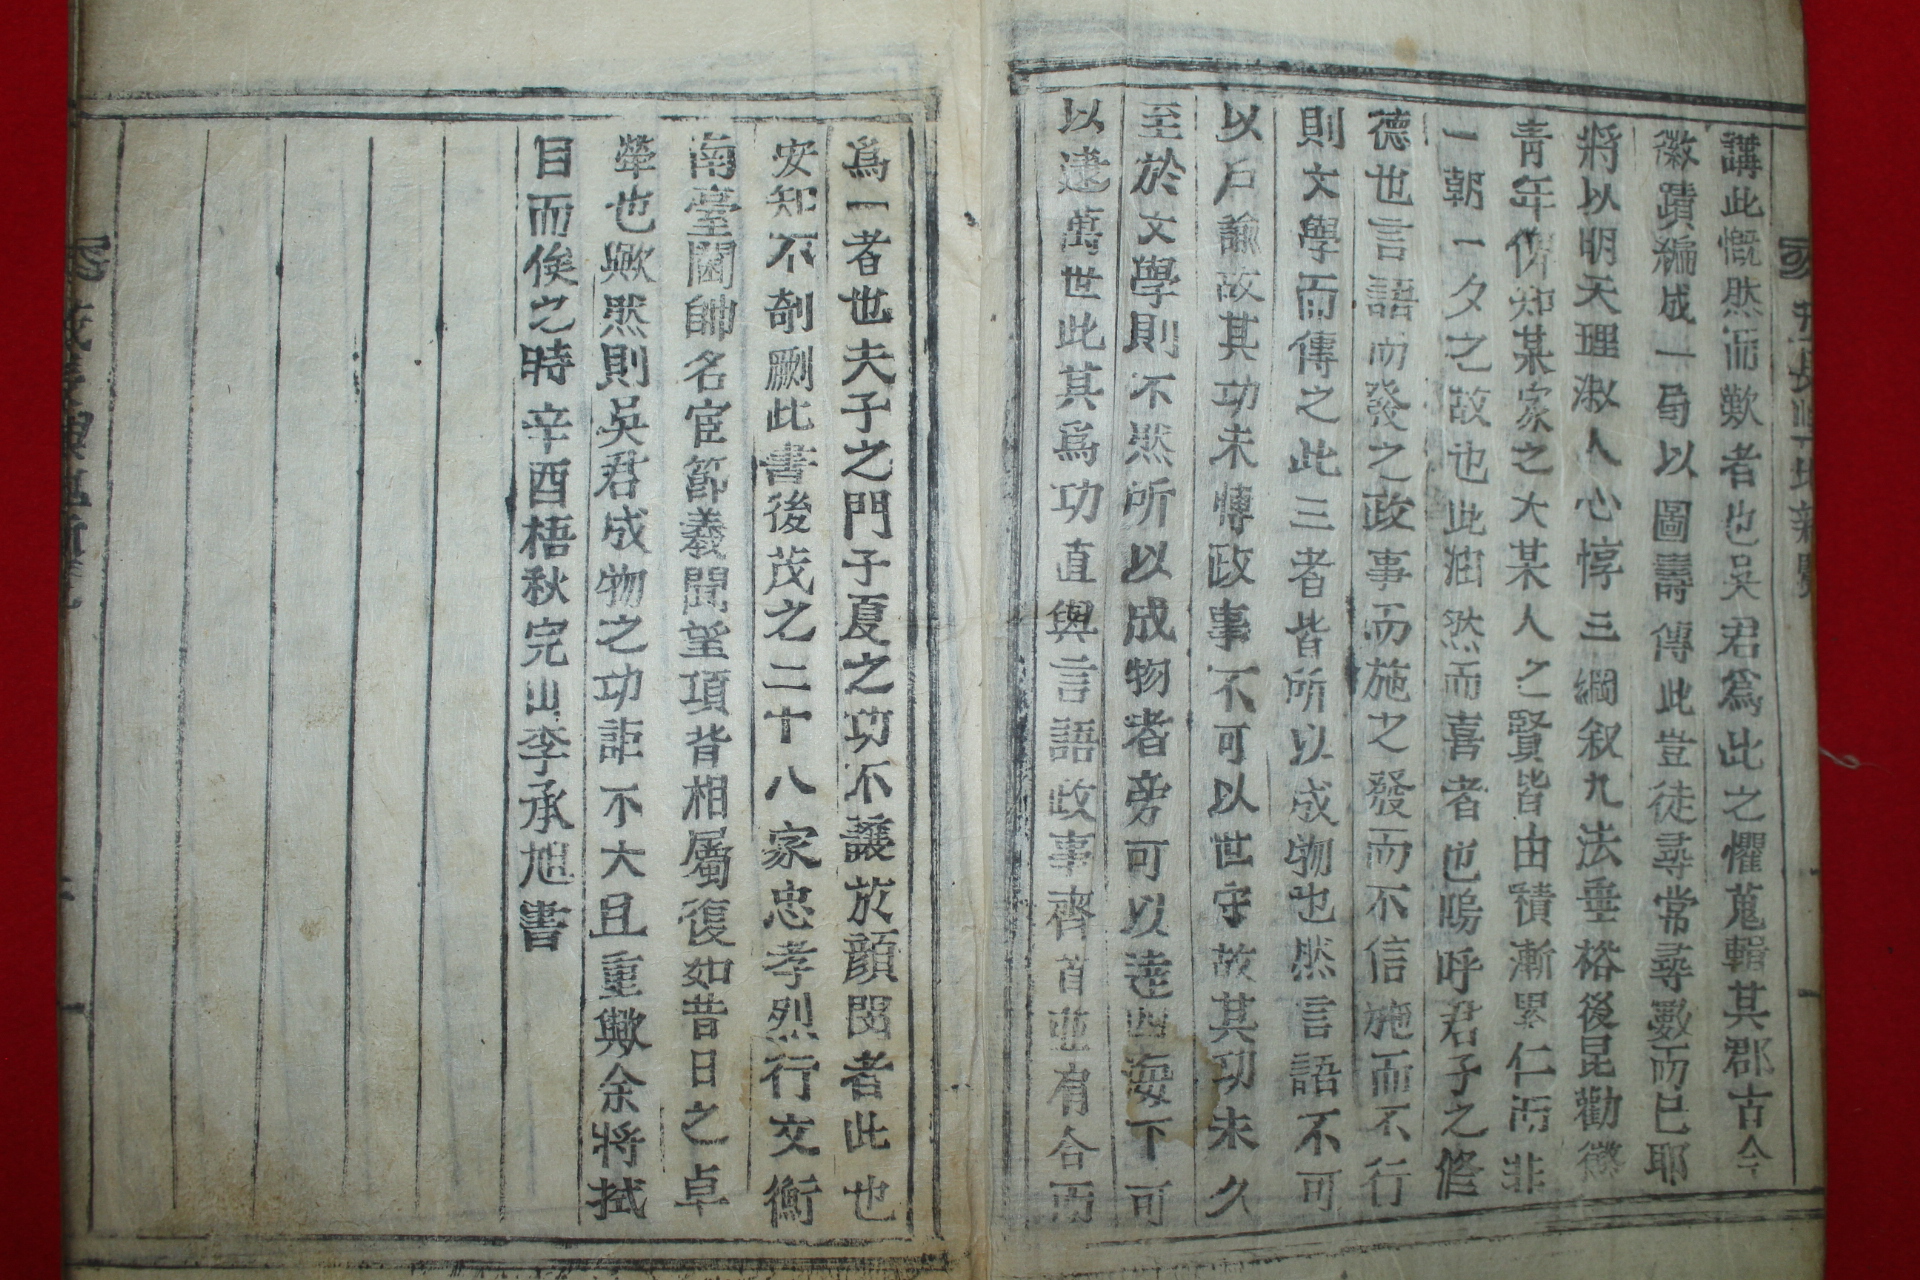 講此慨然而歎者也吳君爲此之懼蒐輯其郡古今
徽蹟編成一局以圖壽傳此豈徒尋常尋數而已耶
將以明天理淑人心惇三綱叙九法垂裕後昆勸懲
靑年俾知某家之大某人之賢皆由積漸累仁而非
一朝一夕之故也此油然而喜者也嗚呼君子之修
德也言語而發之政事而施之發而不信施而不行
則文學而傳之此三者皆所以成物也然言語不可
以戶諭故其功未博政事不可以世守故其功未久
至於文學則不然所以成物者旁可以達四海下可
以逮萬世此其爲功直與言語政事齊首並肩合而
爲一者也夫子之門子夏之功不讓於顔閔者此也
安知不剞劂此書後茂之二十八家忠孝烈行文衡
南臺閫帥名宦節義聞望項背相屬復如昔日之卓
犖也歟然則吳君成物之功詎不大且重歟余將拭
目而俟之時辛酉梧秋完山李承旭書